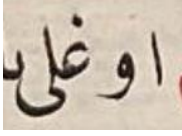 اوغلی